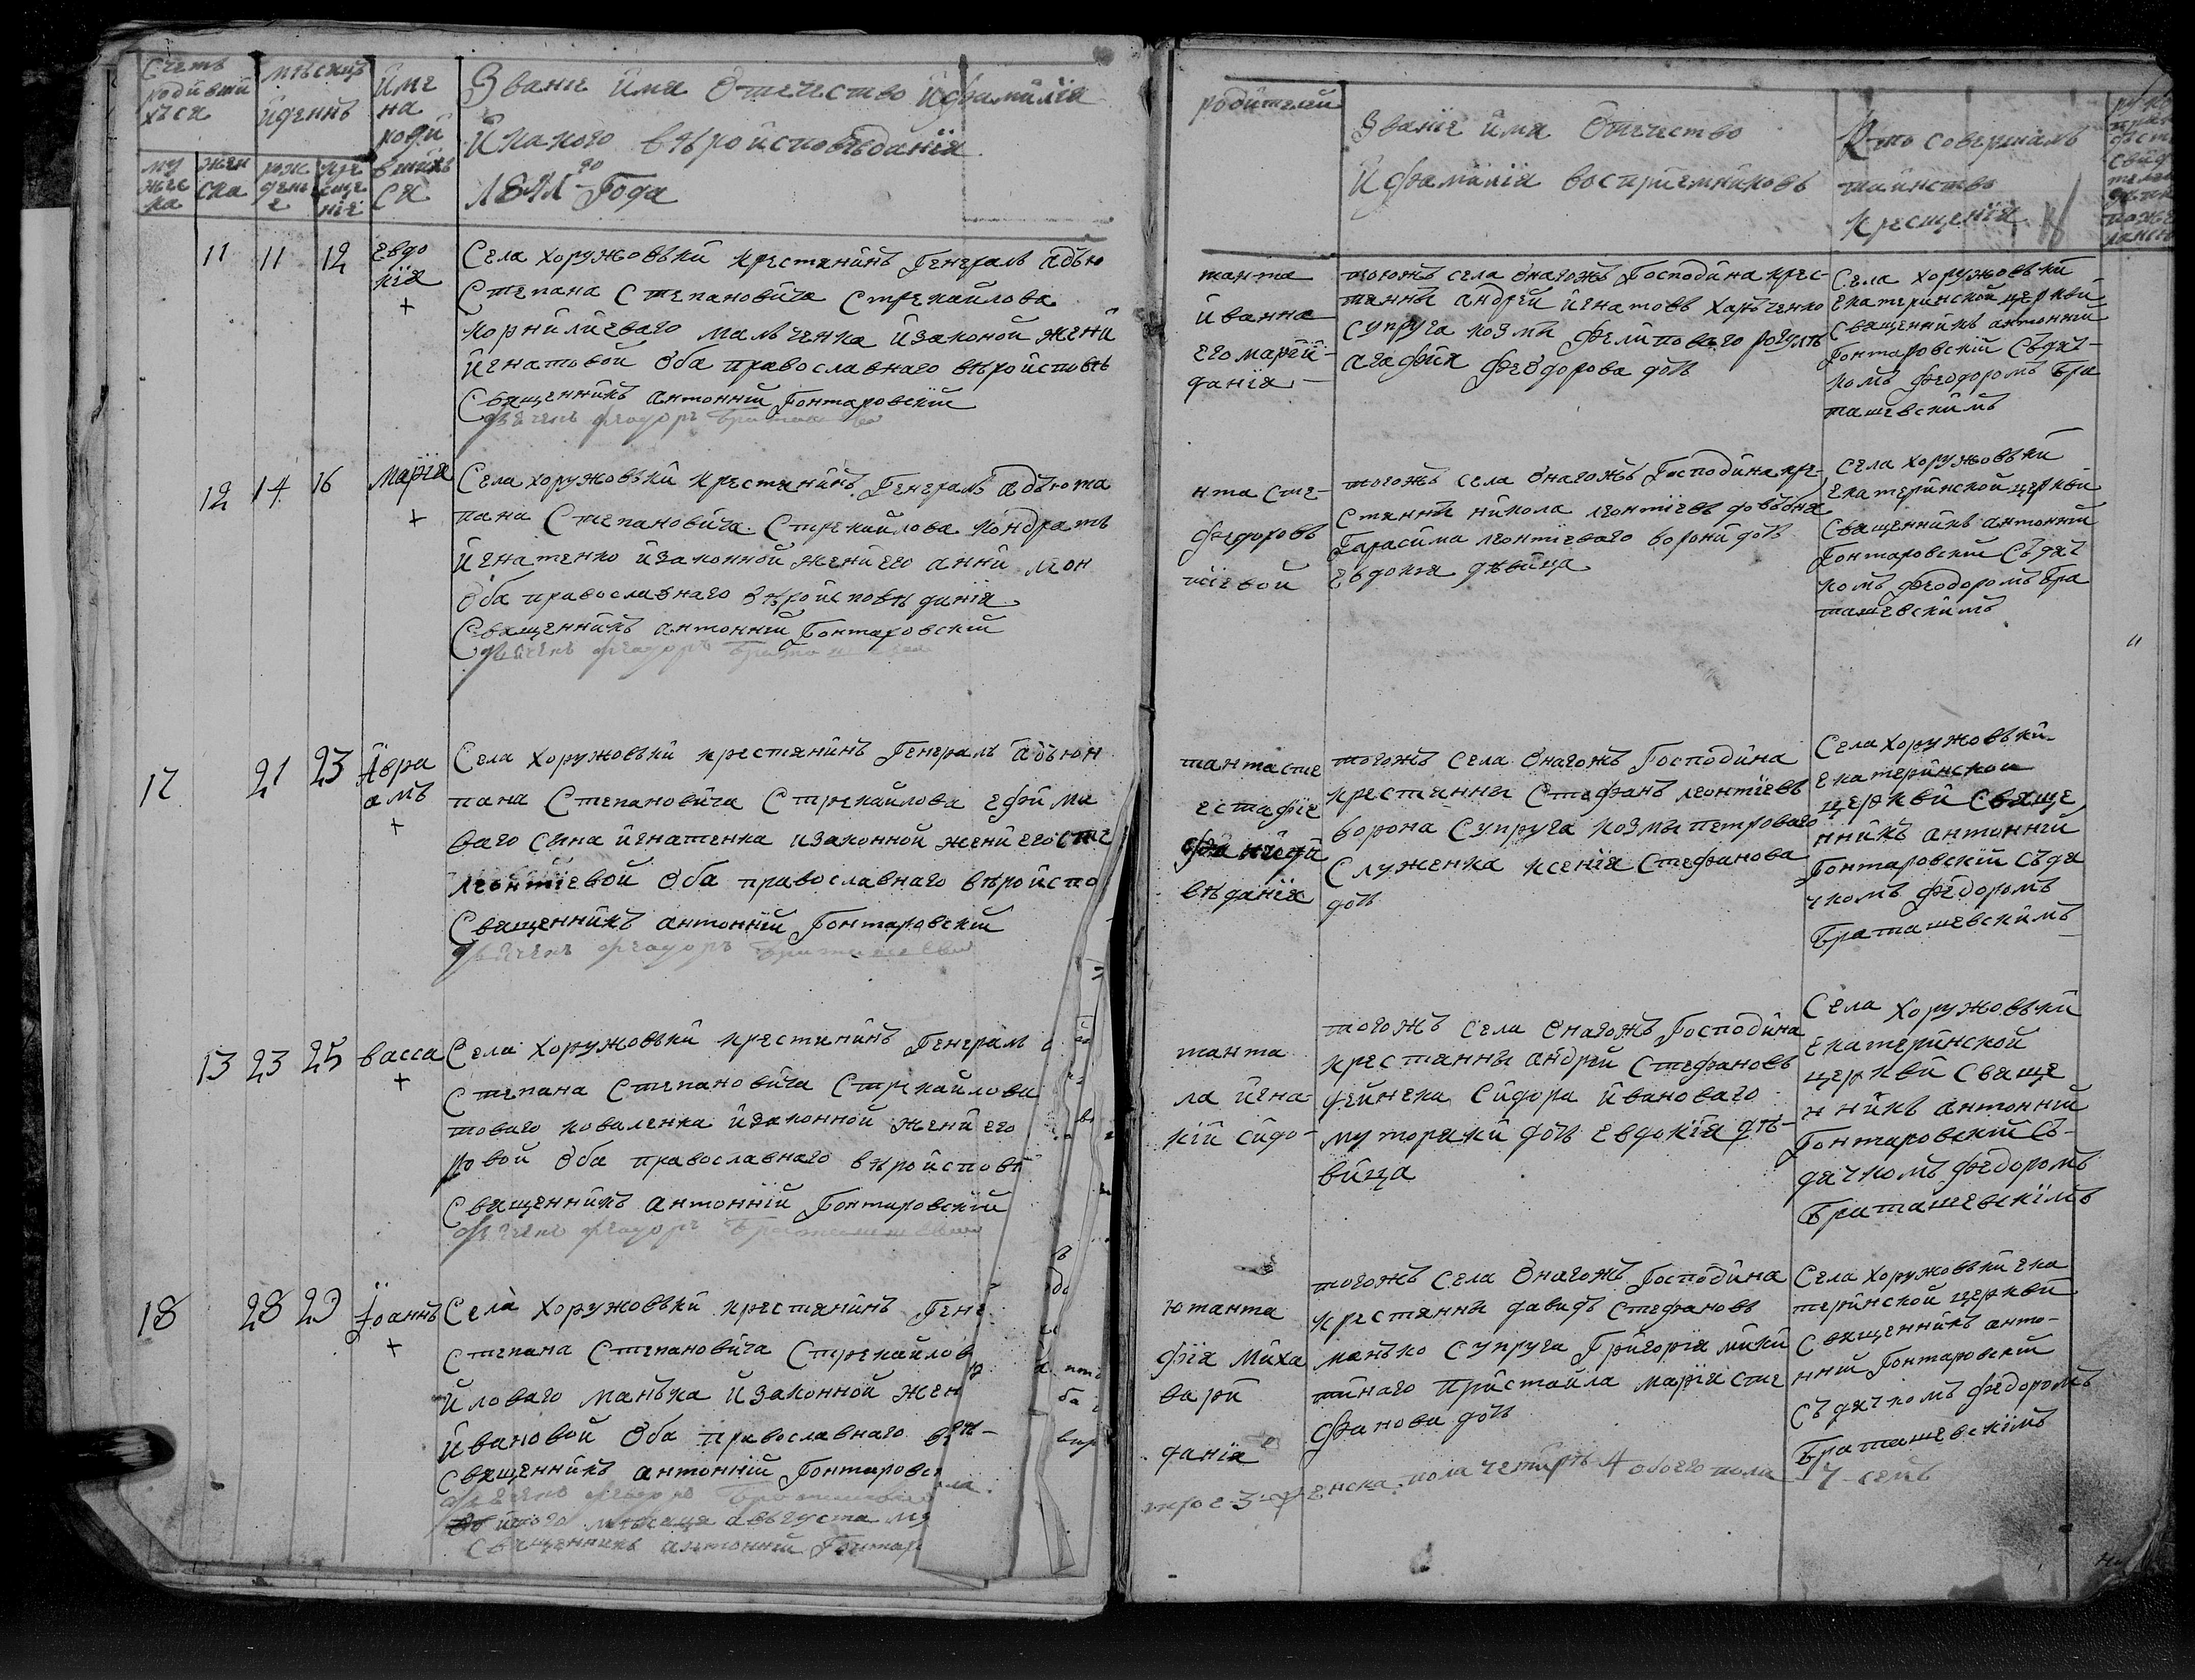 Счетъ родившихся
мѣсяцъ и деннъ
Име
на
роди
вшихъ
ся
Звание имя Отечество и фамилїя
И какого вѣроисповѣданїя
1841го Года
му
жес
ка
жен
ска
рож
дени
е
кре
ще
нїе
11 11 12 Евдо
кїя
+
Села хоружовъки крестянинъ Генералъ адъю
Степана Степановича Стрекайлова
корнилиеваго мальченка изаконой жени
Игнатовой оба православнаго вѣроисповѣ
Священникъ антонній Гонтаровскїй
дьячекъ феодоръ
12 14 16 Марїя
+
Села хоружовъки крестянинъ Генералъ адъюта
пана Степановича Стрекайлова кондратъ
Игнатенко изаконной жени его анни леон
Оба православнаго вѣроисповѣданїя
Священникъ антонній Гонтаровскїй
дьячекъ феодоръ
17 21 23 Авра
амъ
+
Села хоружовъки крестянинъ Генералъ адъюн
пана Степановича Стрекайлова ефима
ваго сина игнатенка изаконной жени его сте
леонтїевой Оба православнаго вѣроиспо
Священникъ антонній Гонтаровскїй
дьячекъ феодоръ
13 23 25 васса
+
Села хоружовъки крестянинъ Генералъ
Степана Степановича Стрекайлова
товаго коваленка изаконной жени его
ровой Оба православнаго вѣроисповѣ
Священникъ антонній Гонтаровскїй
дьячекъ феодоръ
18 28 29 Іоаннъ
+
Села хоружовъки крестянинъ Гене
Степана Степановича Стрекайлов
йловаго манька изаконной жен
Ивановой Оба православнаго вѣ-
Священникъ антонній Гонтаровс
дьячекъ феодоръ
итого мѣсяца августа му
Священникъ антонній Гонтар
родителей
Званїе имя Отечество
И фамилїя восприемниковъ
Кто совершалъ
таинство
крещенїя
танта
йванна
его марїи-
данїя
тогожъ села онагожъ Господина крес-
тянни андрей игнатовъ харченко
супруга козми филиповаго рогулѣ
агафия феодорова дочь
Села хоружовъки
Екатеринской церкви
Священникъ антонній
Гонтаровскій Съ дяч-
комъ феодоромъ Бра
ташевскимъ
нта Сте-
федоровъ
тїевой
тогожъ села онагожъ Господина кре-
Стянни никола леонтїевъ довъбня
Гарасима леонтїеваго ворони дочь
Евдокия дѣвица
села хоружовъки
Екатеринской церкви
Священникъ антонній
Гонтаровскій Съ дяч
комъ феодоромъ Бра
ташевскимъ
танта сте
естафїе
вѣданїя
тогожъ села Онагожъ Господина
крестянни Стефанъ леонтїевъ
ворона Супруга козми петроваго
Служенка ксенїя Стефанова
дочь
Села хоружовъки
Екатеринской
церкви Свяще
нникъ антонній
Гонтаровскїй Съ дя
чкомъ федоромъ
Браташевскимъ
танта
ла игна-
кїй сидо-
тогожъ села Онагожъ Господина
крестянни андрей Стефановъ
дейнека Сидора Ивановаго
муторяки дочь Евдокїя дѣ-
вица
Села хоружовъки
Екатеринской
церкви Свяще
нникъ антонній
Гонтаровскїй Съ-
дячкомъ федоромъ
Браташевскїмъ
ютанта
фїя Миха
вари
данїя
тогожъ села Онагожъ Господина
крестянни давидъ Стефановъ
манько супруга Григорїя мики
тинаго пристайла марїя сте
фанова дочь
Села хоружовъки Ека
теринской церкви
Священникъ анто-
нній Гонтаровскїй
Съ дячкомъ федоромъ
Браташевскїмъ
трое 3 женска пола четире 4 обоего пола 7 семъ